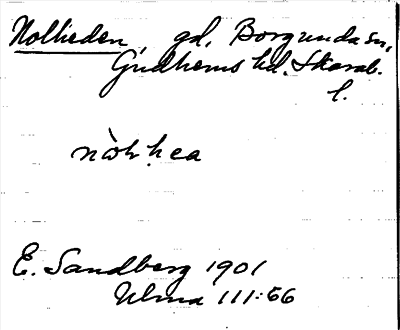 Nollieden, gd, Borgunda sn,
Gudhems hd. Skarab.
l.
E. Sandberg 1901
Ulma 111:66